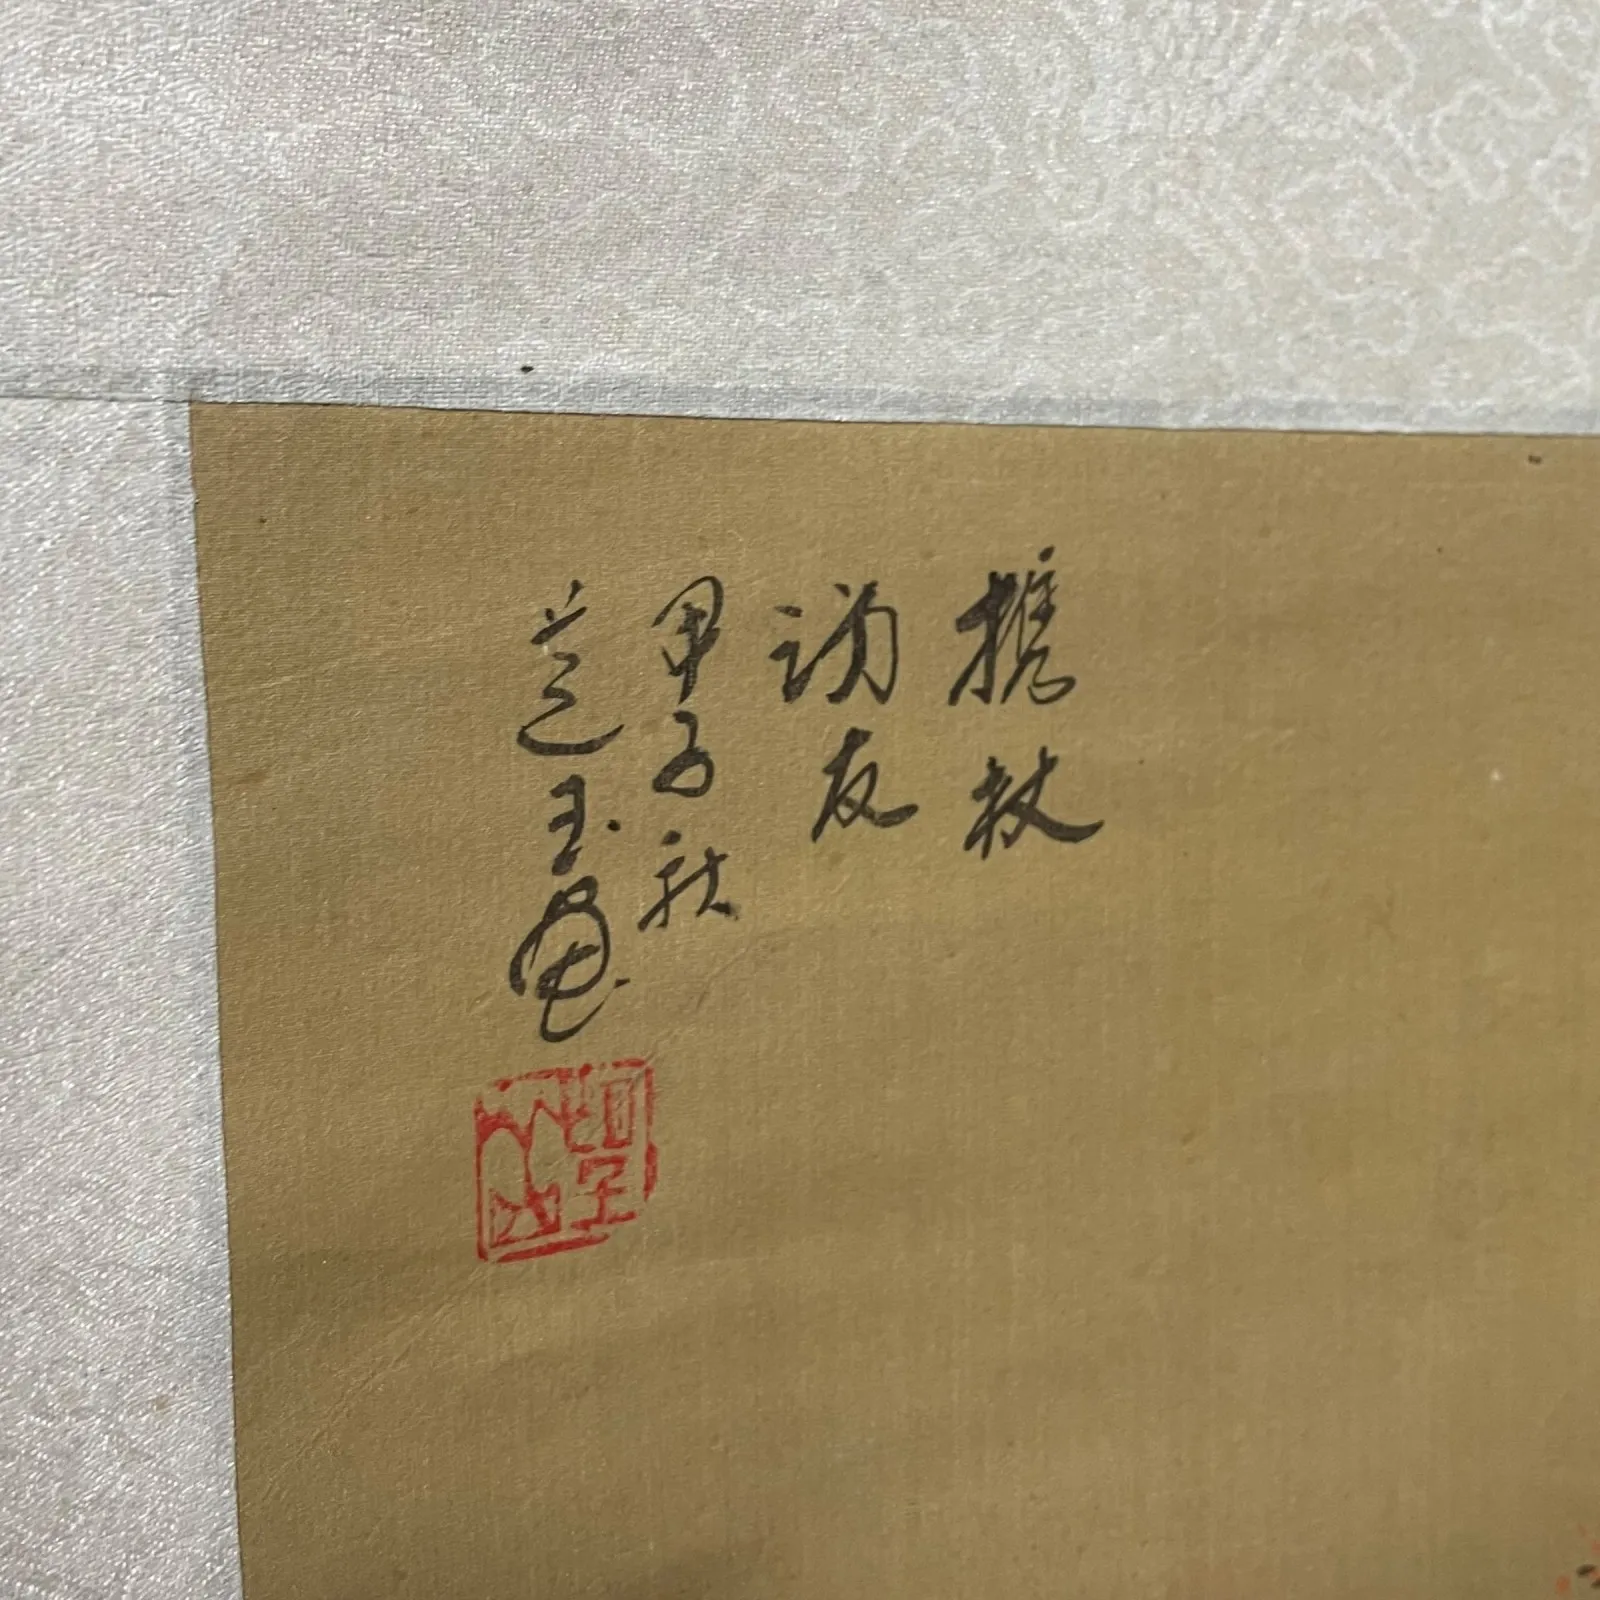 携杖
访友
甲子秋
芝玉画